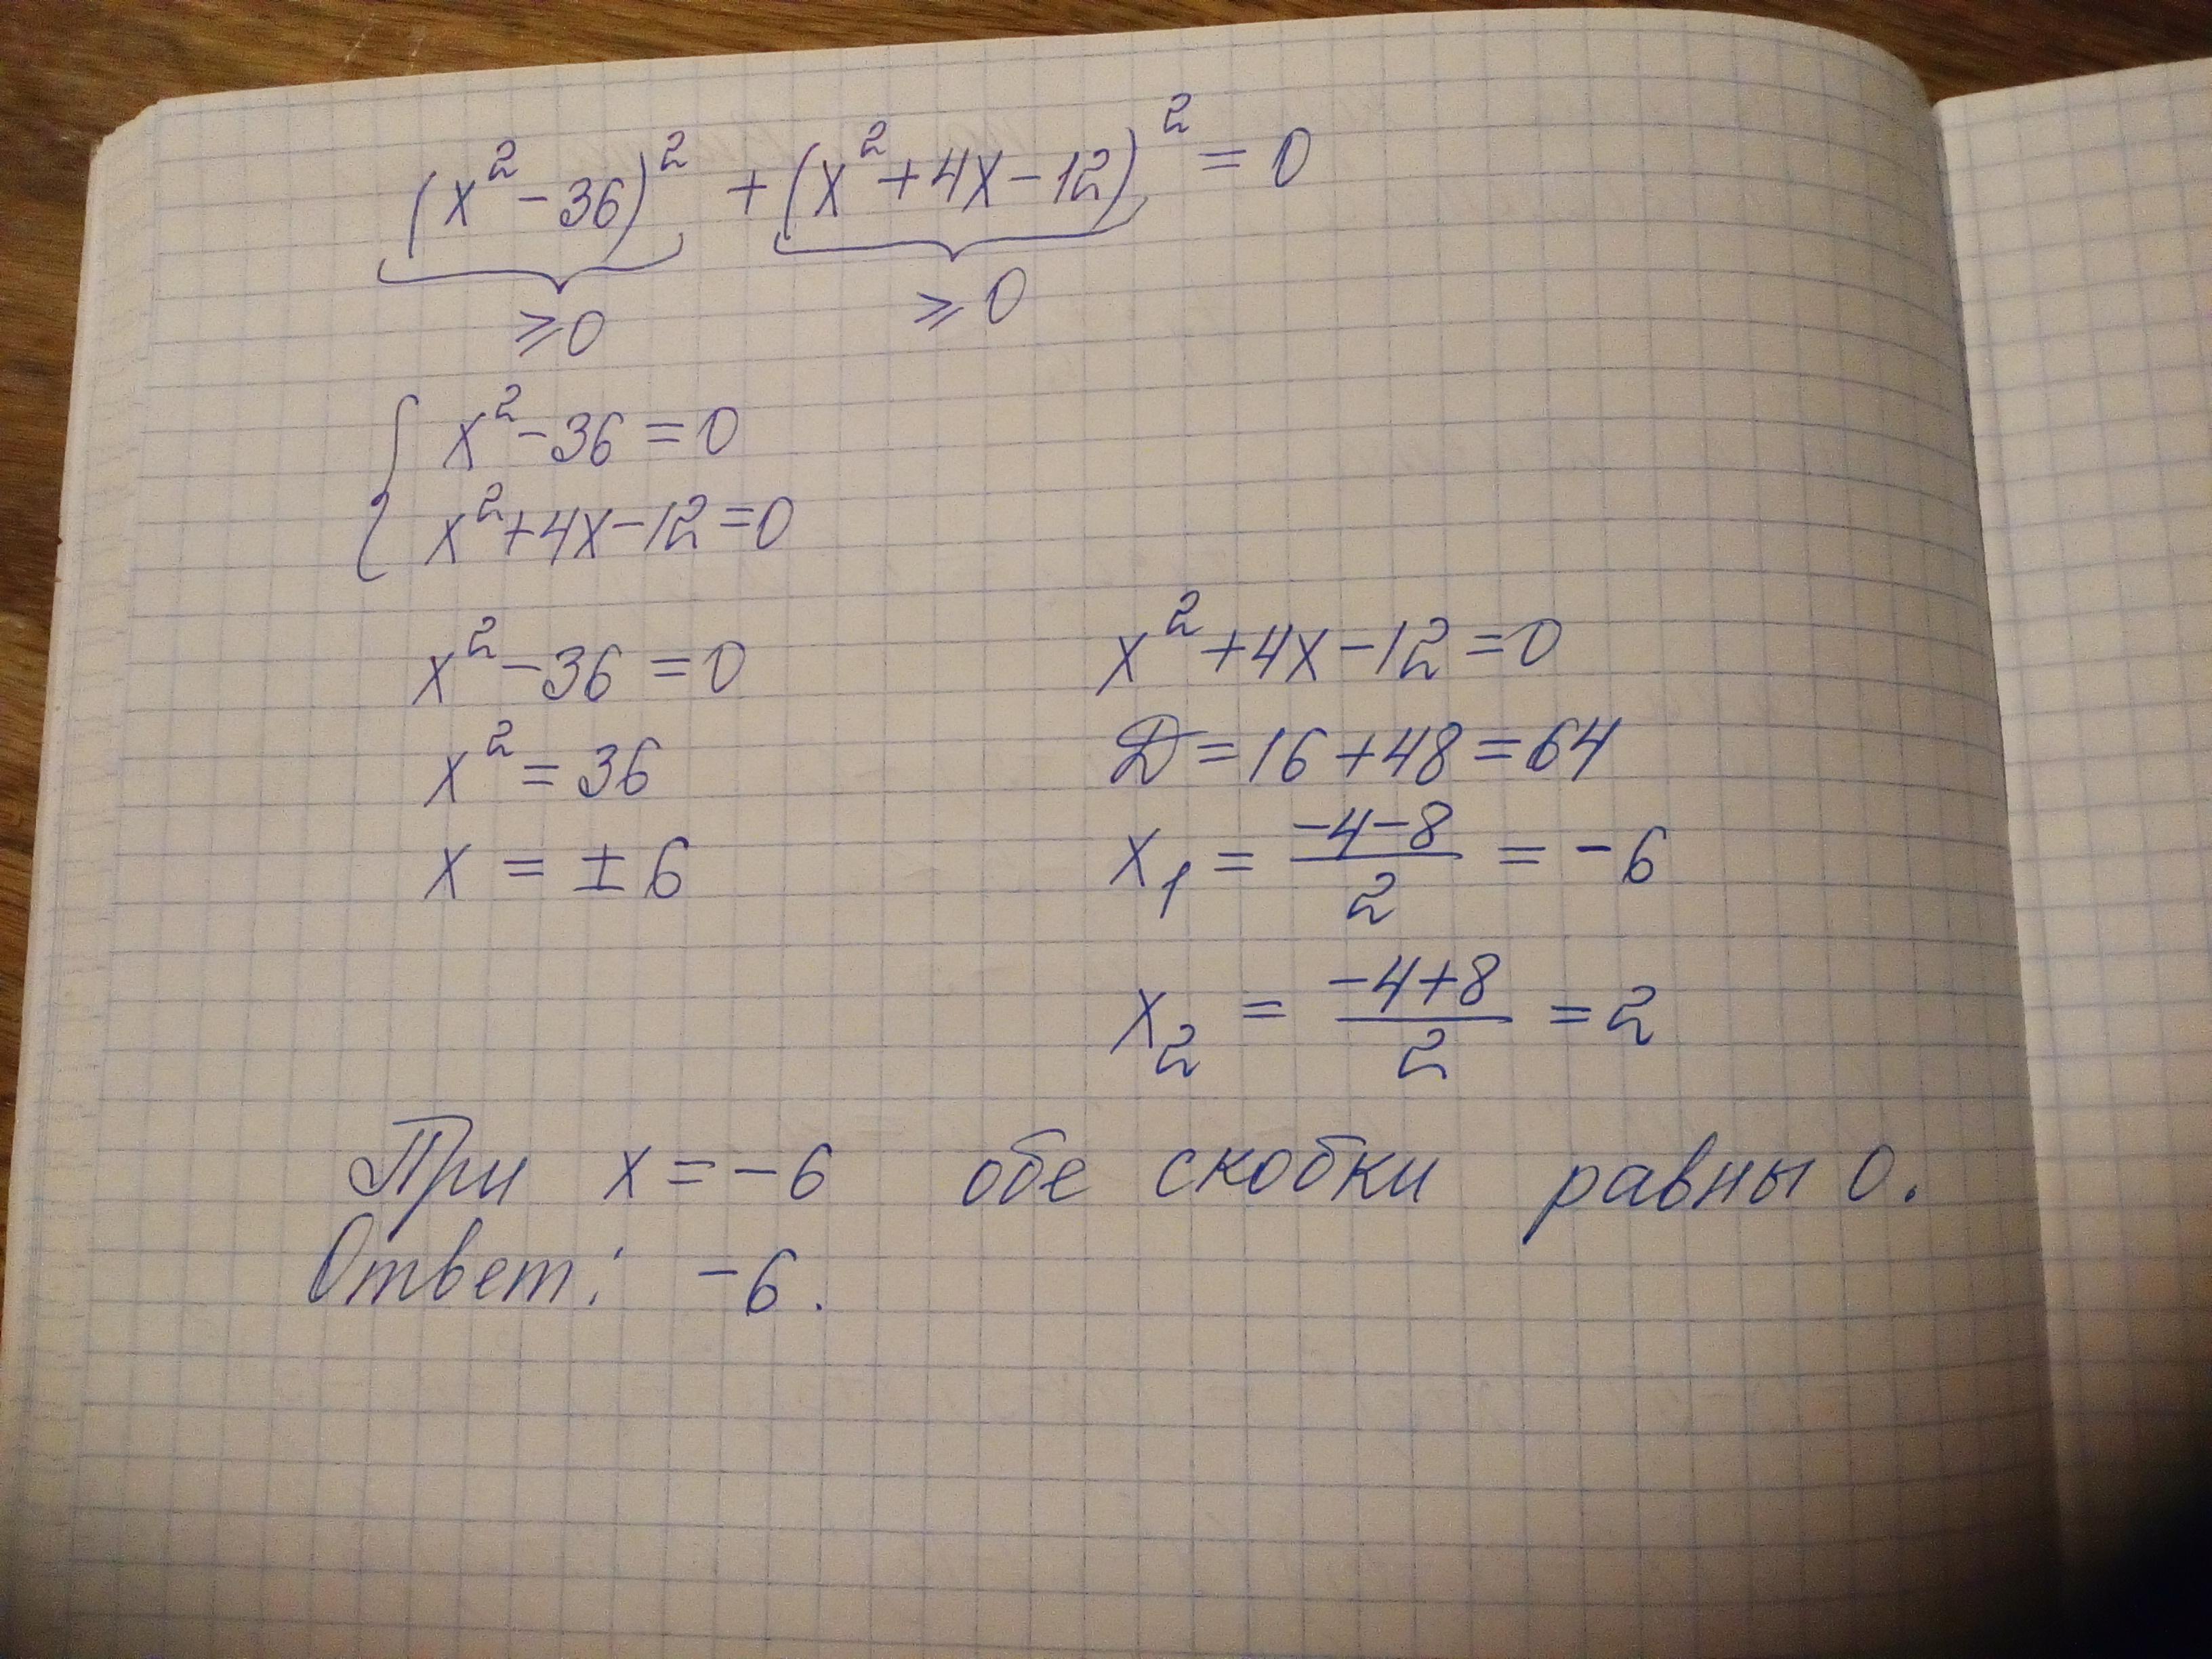 (x² - 36)² + (x² + 4x - 12)² = 0
≥0 ≥0
{ x² - 36 = 0
x² + 4x - 12 = 0
x² - 36 = 0
x² = 36
x = ± 6
x² + 4x - 12 = 0
D = 16 + 48 = 64
x₁ = (-4-8)/2 = -6
x₂ = (-4+8)/2 = 2
При x = -6 обе скобки равны 0.
Ответ: -6.